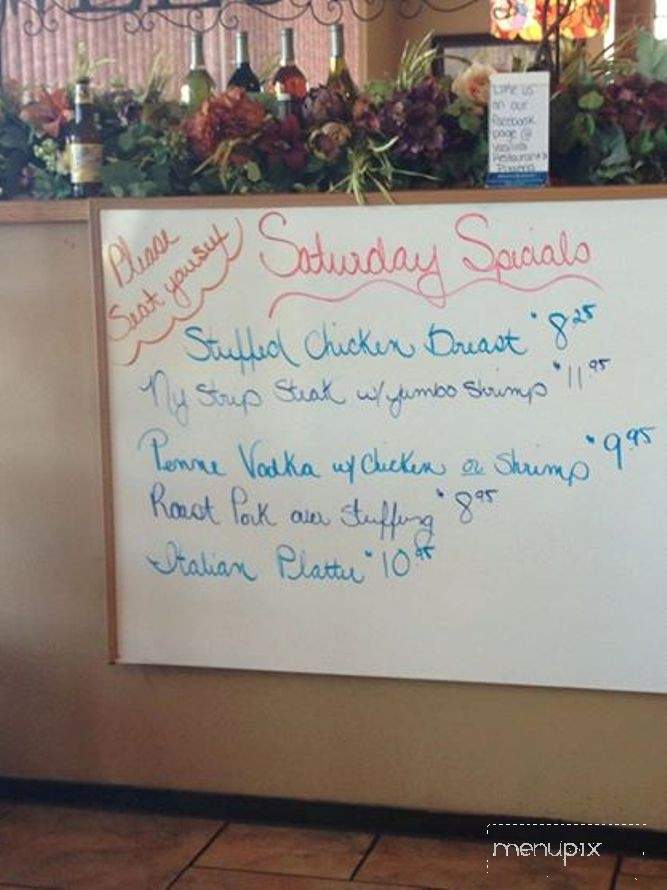 Like us
on our
facebook
page @
Vasilios
Restaurant &
Please
Seat yourself
Saturday Specials
Stuffed Chicken Breast $8.25
Ny Strip Steak w/ Jumbo Shrimp $11.95
Penne Vodka w/ Chicken or Shrimp $9.95
Roast Pork over Stuffing $8.95
Italian Platter $10.95
menupix